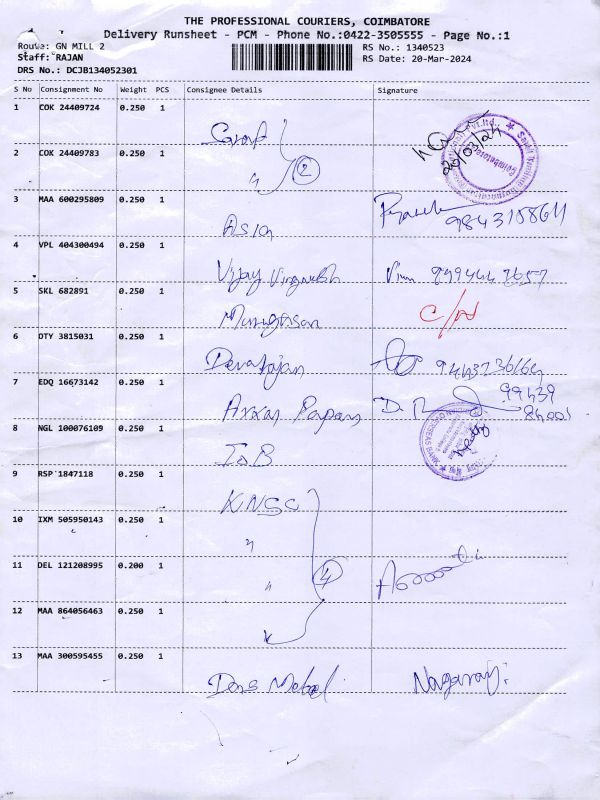 THE PROFESSIONAL COURIERS, COIMBATORE
Delivery Runsheet - PCM - Phone No.:0422-3505555 - Page No.:1
Route: GN MILL 2 RS No.: 1340523
Staff: RAJAN RS Date: 20-Mar-2024
DRS No.: DCJB134052301
S No Consignment No Weight PCS Consignee Details Signature
1 COK 24409724 0.250 1
20/03/24
2 COK 24409783 0.250 1 " 2
3 MAA 600295809 0.250 1 Asia
4 VPL 404300494 0.250 1 Vijay
5 SKL 682891 0.250 1 Murugesan C/N
6 DTY 3815031 0.250 1 Devarajan
7 EDQ 16673142 0.250 1 D.
8 NGL 100076109 0.250 1 IOB OVERSEAS BANK
9 RSP 1847118 0.250 1 KNSC
10 IXM 505950143 0.250 1 "
11 DEL 121208995 0.200 1 " 4
12 MAA 864056463 0.250 1
13 MAA 300595455 0.250 1 Nagaraj